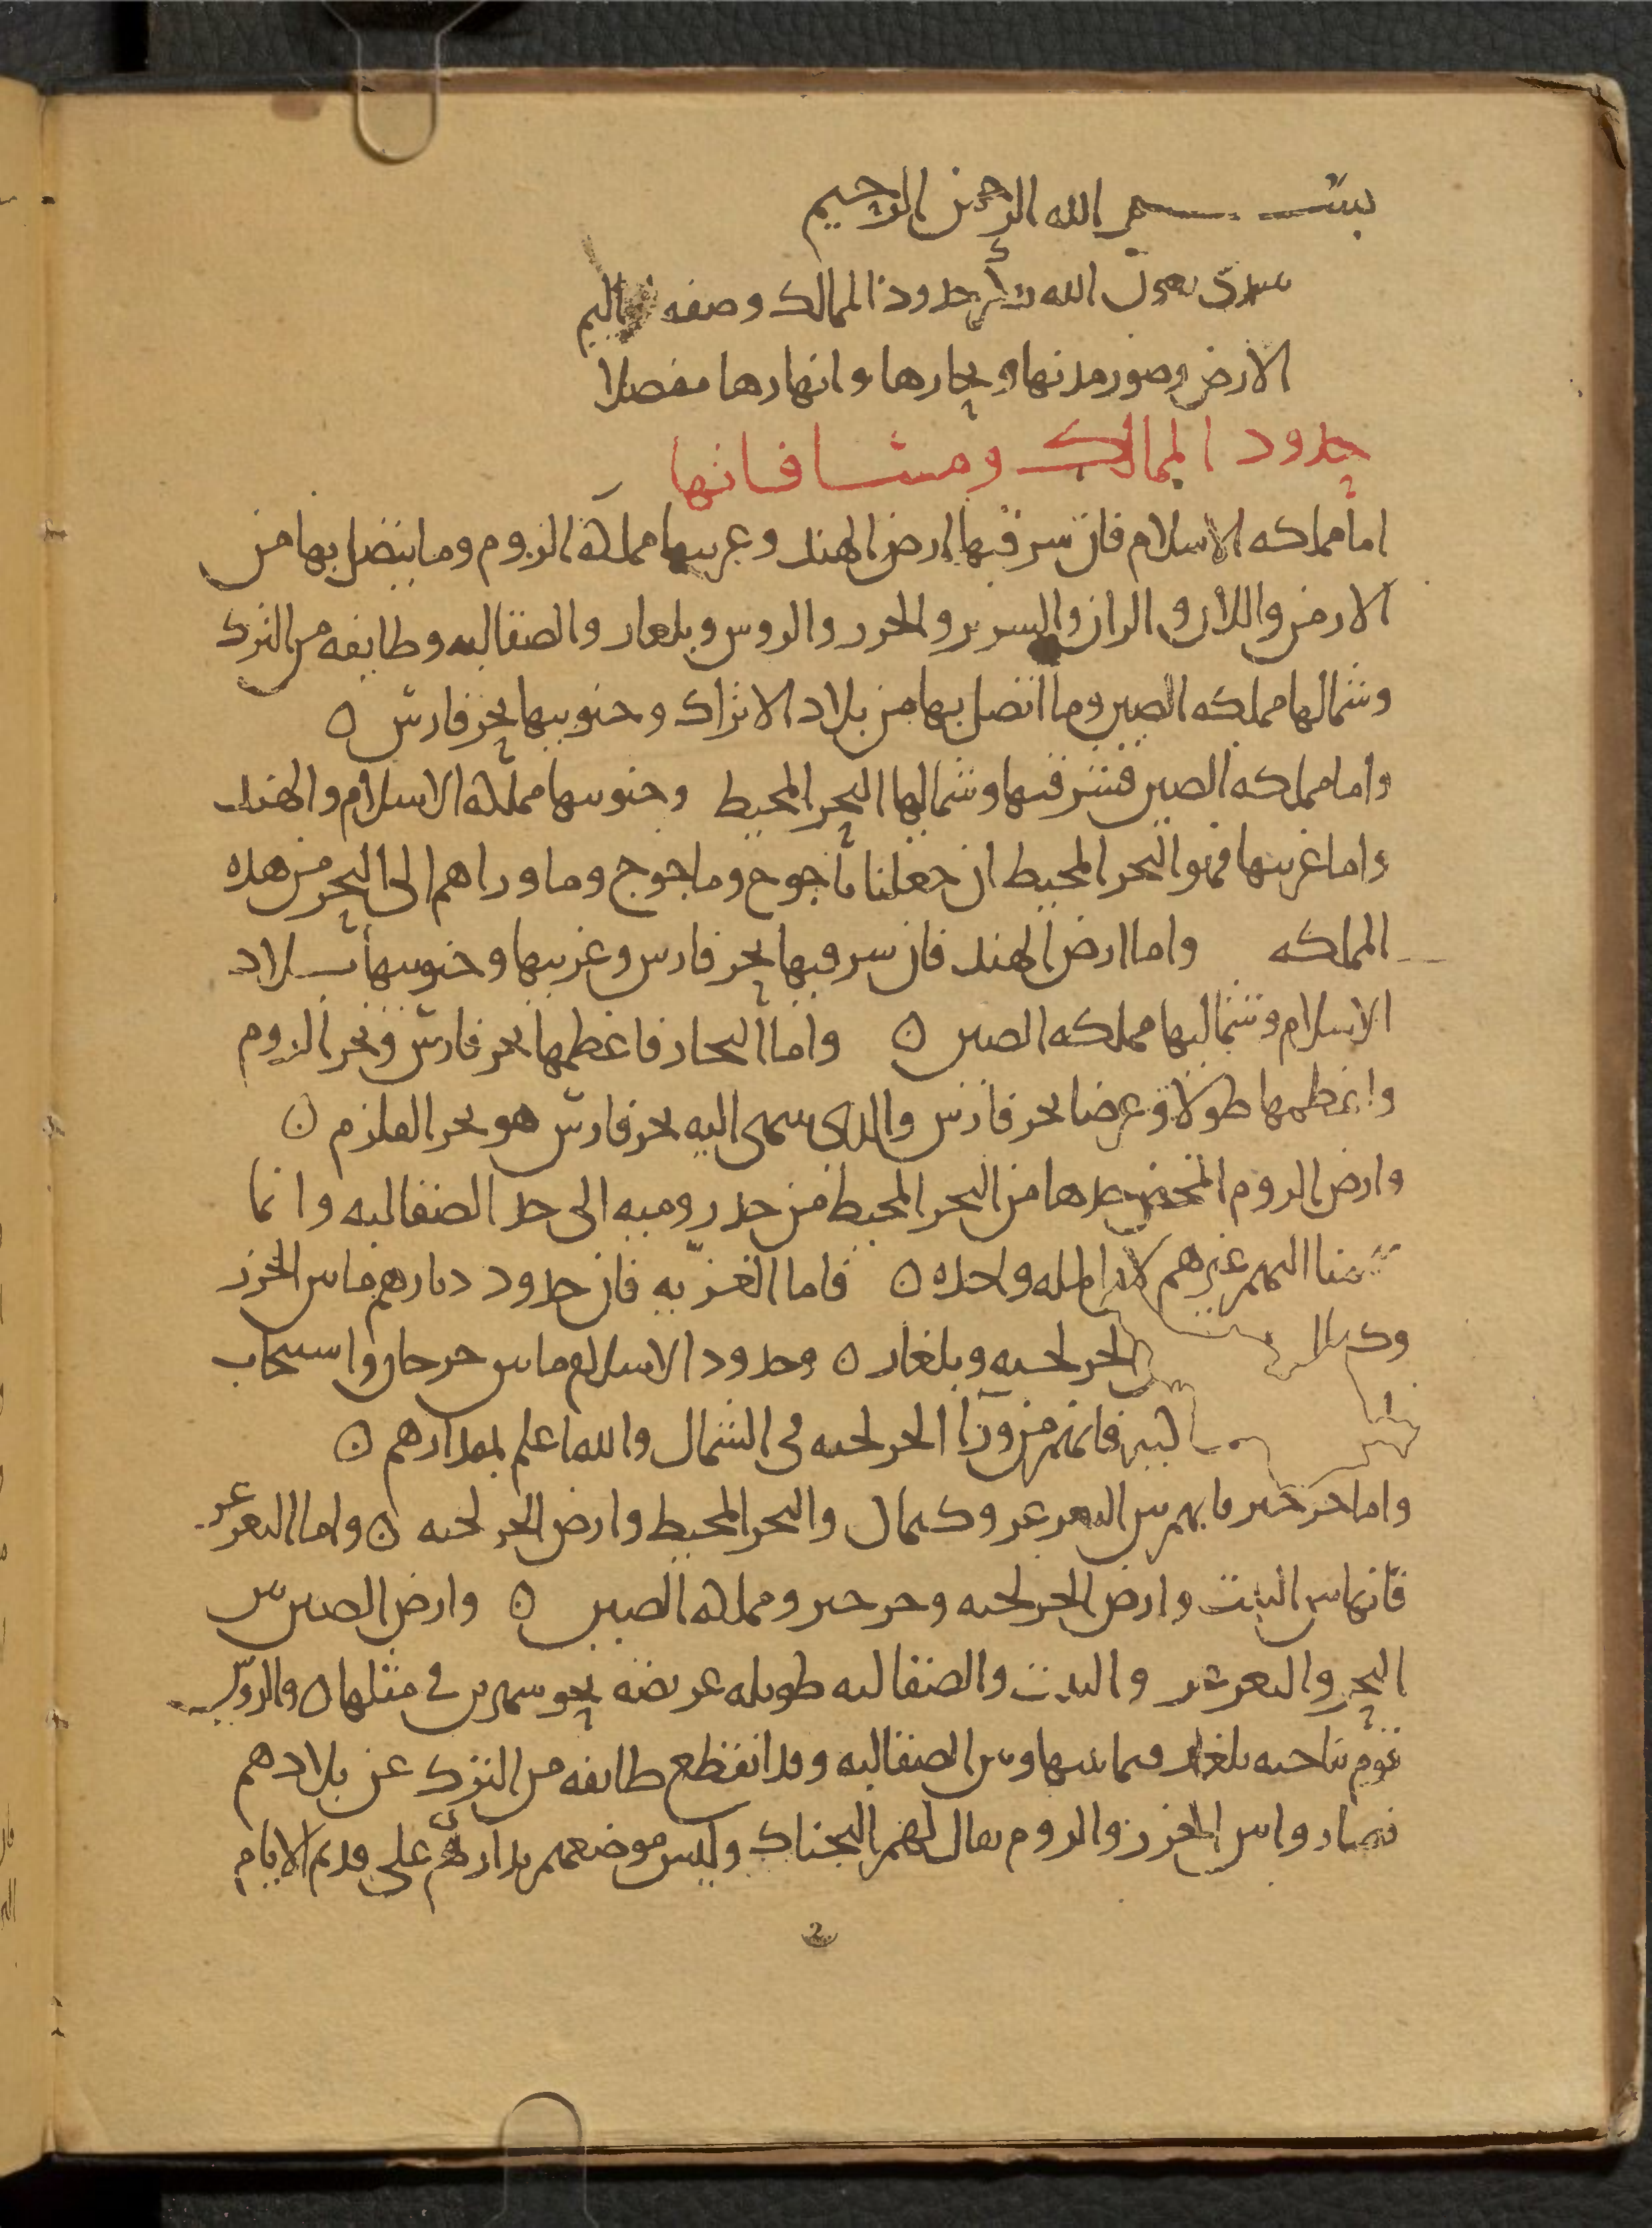 بسم الله الرحمن الرحيم
نبتدى بعون الله بذكر حدود الممالك وصفه اقاليم
الارض وصور مدنها وبحارها وانهارها مفصلا
حدود الممالك ومسافاتها
اما مملكه الاسلام فان شرقيها ارض الهند وغربيها مملكة الروم وما يتصل بها من
الارمن واللان والران والسرير والخزر والروس وبلغار والصقالبه وطايفه من الترك
وشمالها مملكه الصين وما اتصل بها من بلاد الاتراك وجنوبيها بحر فارس ٥
واما مملكه الصين فشرقيها وشماليها البحر المحيط وجنوبيها مملكة الاسلام والهند
واما غربيها فهو البحر المحيط ان جعلنا ياجوج وماجوج وما وراهم الى البحر من هذه
المملكه واما ارض الهند فان شرقيها بحر فارس وغربيها وجنوبيها بلاد
الاسلام وشماليها مملكه الصين ٥ واما البحار فاعظمها بحر فارس وبحر الروم
واعظمها طولا وعرضا بحر فارس والذى ينتهى اليه بحر فارس هو بحر القلزم ٥
وارض الروم حدها من البحر المحيط من حد روميه الى حد الصقالبه وانما
ضممنا اليهم غيرهم لان المله واحده ٥ فاما الغزيه فان حدود ديارهم ما بين الخزر
وكيماك الخرلخيه وبلغار ٥ وحدود الاسلام ما بين جرجان واسبيجاب
فانهم من ورا الخرلخيه فى الشمال والله اعلم بمقدارهم ٥
واما خرخير فانهم بين التغرغر وكيماك والبحر المحيط وارض الخرلخيه ٥ واما التغرغر
فانها بين التبت وارض الخرلخيه وخرخير ومملكة الصين ٥ وارض الصين بين
البحر والتغرغر والتبت والصقالبه طويله عريضه نحو شهرين فى مثلها ٥ والروس
قوم بناحيه بلغار فيما بينها وبين الصقالبه وقد انقطع طايفه من الترك عن بلادهم
فصاروا بين الخزر والروم يقال لهم البجناك وليس موضعهم بدارهم على قديم الايام